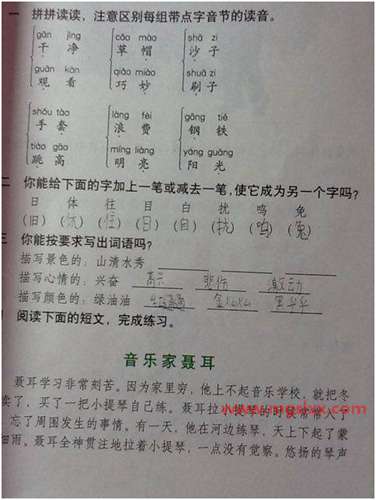 一 拼拼读读，注意区别每组带点字音节的读音。
gān jìng cǎo mào shā zi
干 净 草 帽 沙 子
guān kàn qiǎo miào shuā zi
观 看 巧 妙 刷 子
shǒu tào làng fèi gāng tiě
手 套 浪 费 钢 铁
tiào gāo míng liàng yáng guāng
跳 高 明 亮 阳 光
二 你能给下面的字加上一笔或减去一笔，使它成为另一个字吗？
日 体 往 目 白 扰 鸣 免
(旧) ( ) (住) (日) ( ) (扰) (鸣) (兔)
三 你能按要求写出词语吗？
描写景色的：山清水秀
描写心情的：兴奋 高兴 悲伤 激动
描写颜色的：绿油油 金灿灿 黑乎乎
阅读下面的短文，完成练习。
音乐家聂耳
聂耳学习非常刻苦。因为家里穷，他上不起音乐学校，就把冬
卖了，买了一把小提琴自己练。聂耳拉小提琴的时候常常入了
忘了周围发生的事情。有一天，他在河边练琴，天上下起了蒙
细雨。聂耳全神贯注地拉着小提琴，一点没有觉察。悠扬的琴声